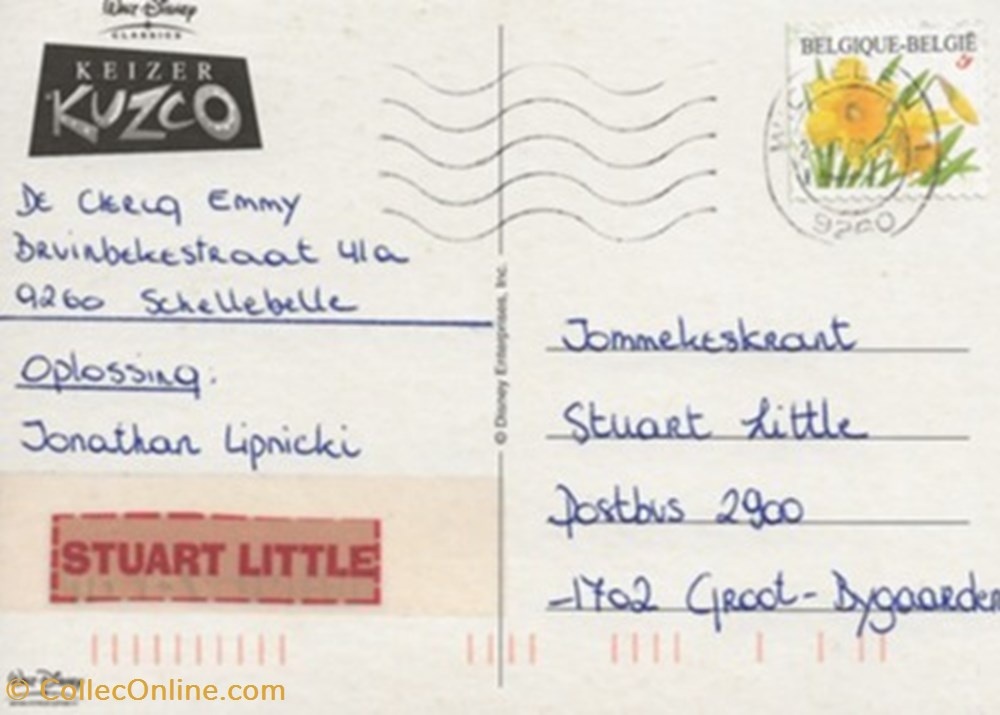 Walt Disney
CLASSICS
KEIZER
KUZCO
BELGIQUE-BELGIË
9200
De Clercq Emmy
Bruinbekestraat 41a
9260 Schellebelle
Oplossing:
Jonathan Lipnicki
STUART LITTLE
© Disney Enterprises, Inc.
Jommekeskrant
Stuart Little
Postbus 2900
-1702 Groot-Bygaarden
Walt Disney
© CollecOnline.com